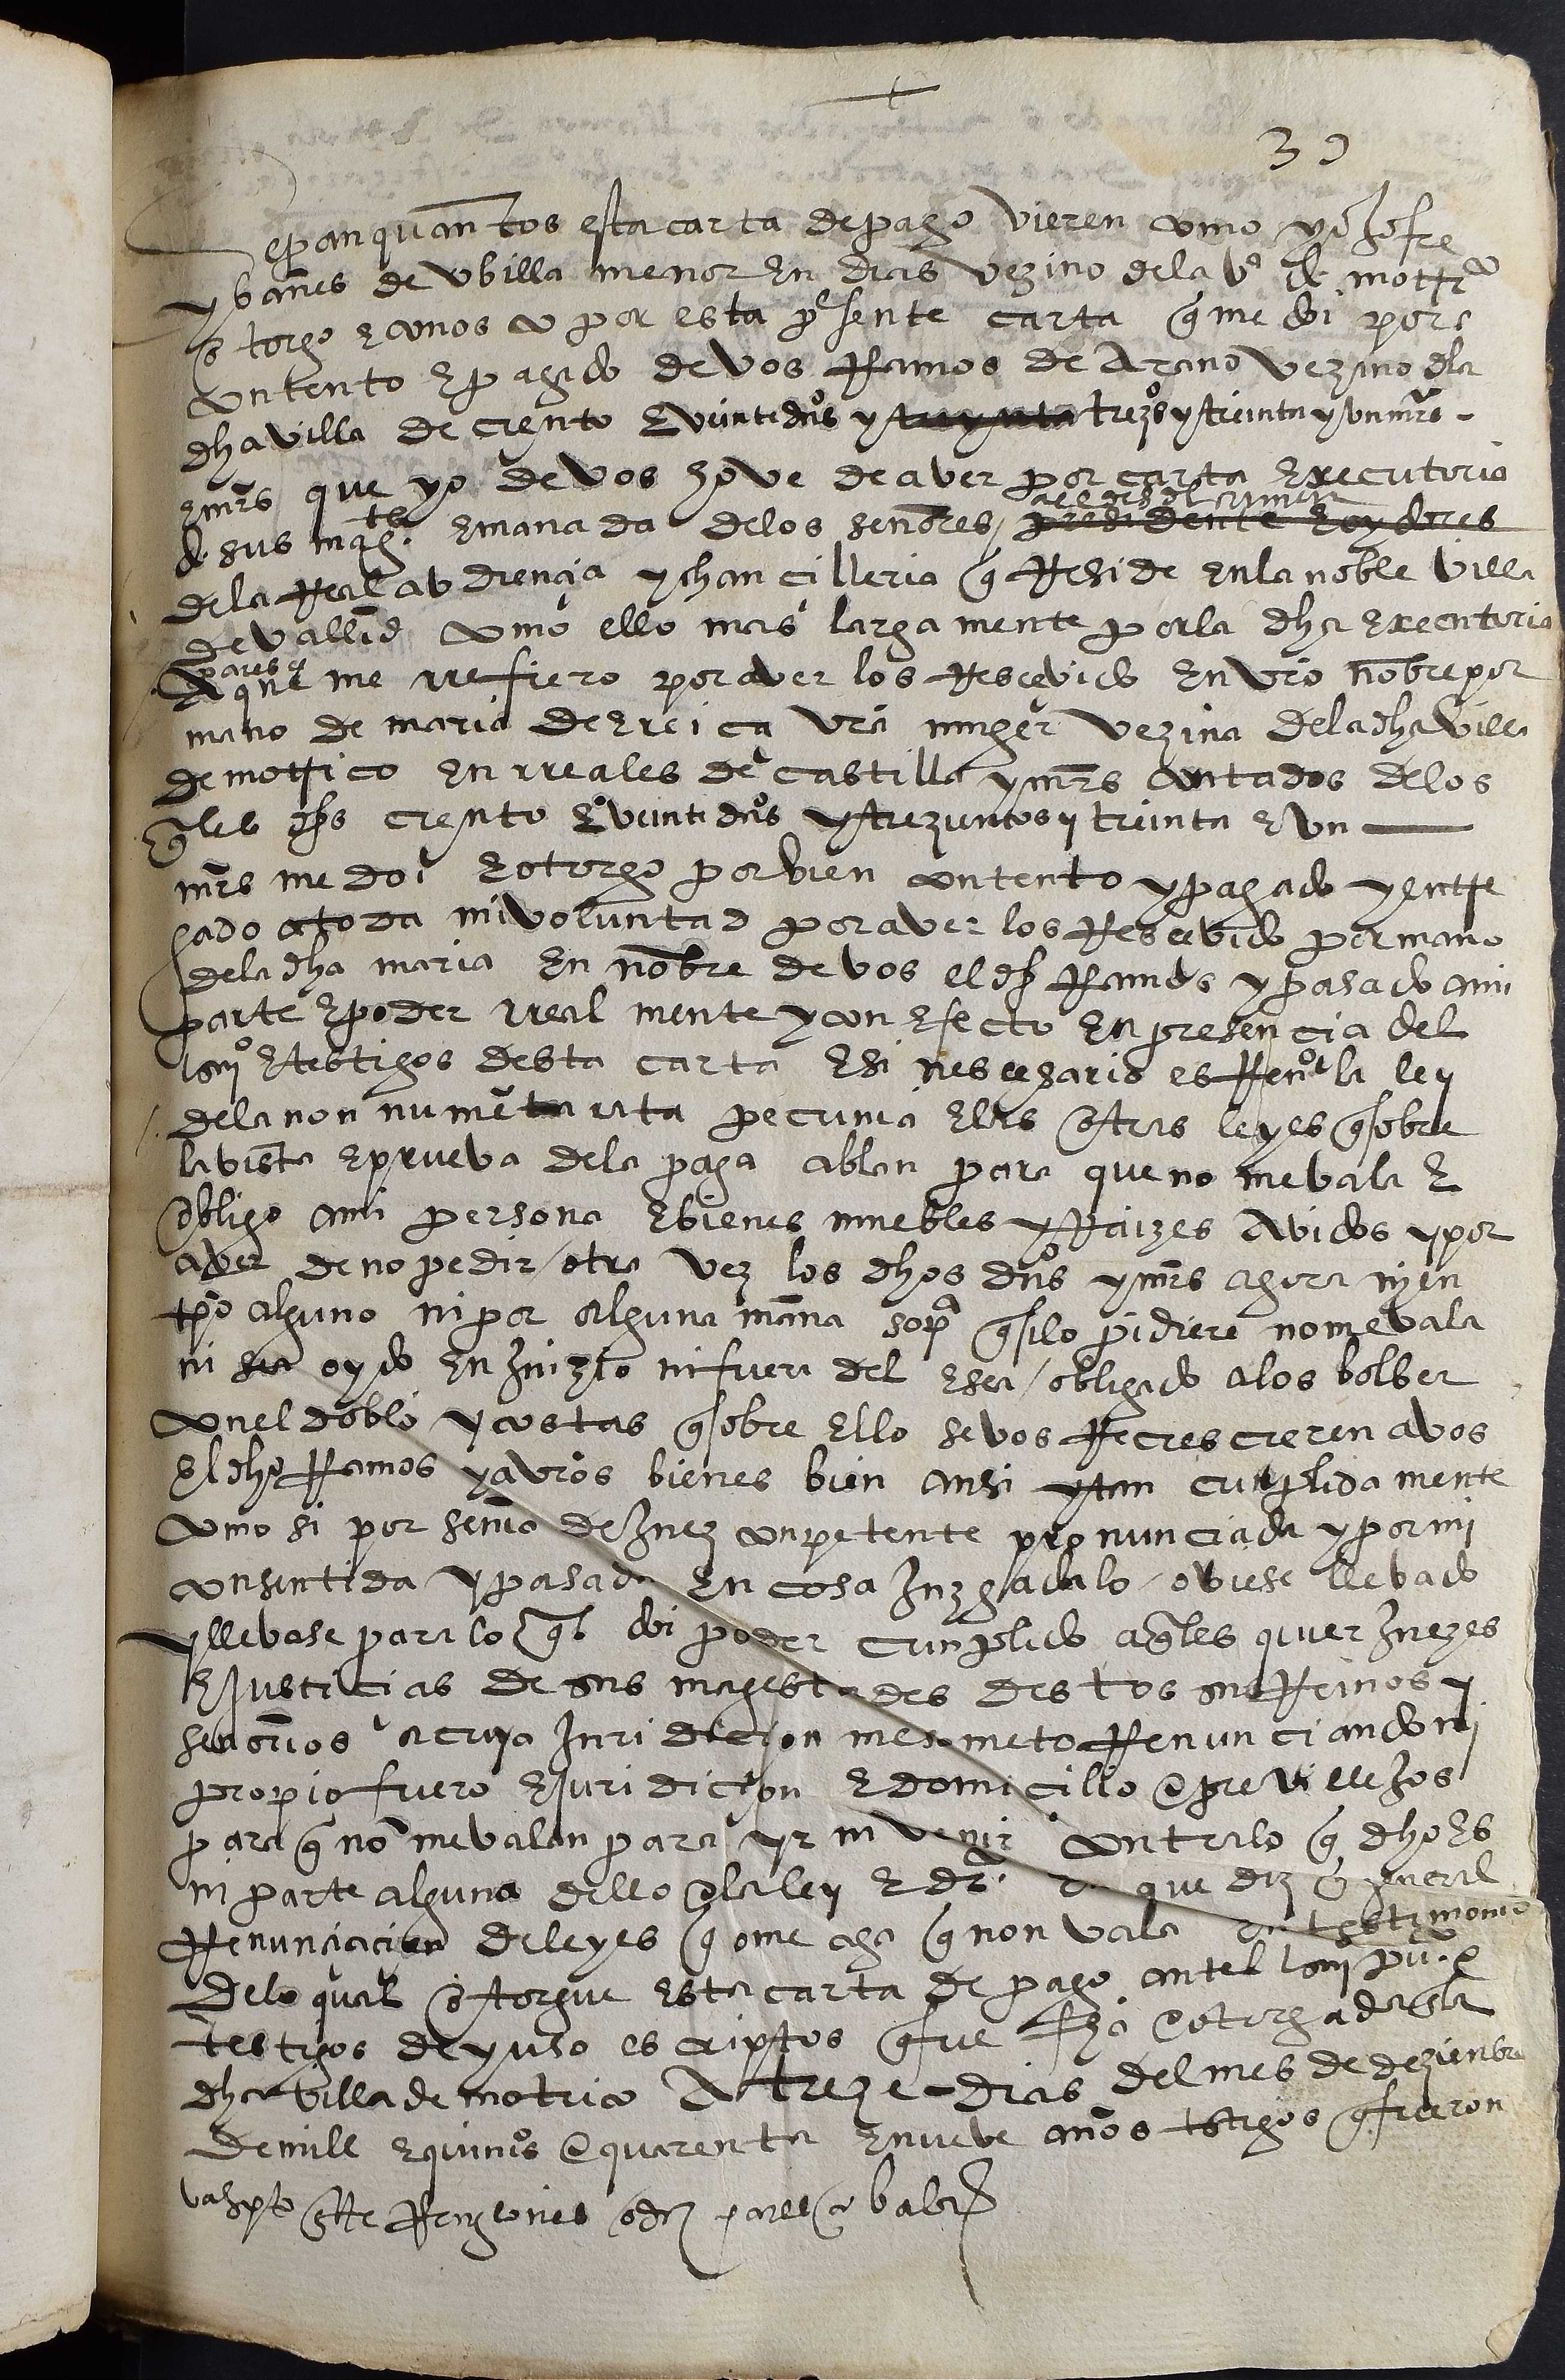 +
39
Sepan quantos esta carta de pago vieren como yo Jofre
ybanes de ubilla menor en dias vezino de la va de motrico
otorgo e conosco por esta presente carta q me doi por
contento e pagado de vos Ramos de Arano vezino dla
dha villa de ciento e veinte dus y treynta trezos y treinta y un mrs
e mrs que yo de vos hove de aver por carta executoria
de sus magtes emanada delos señores alcaldes del crimen presidente e oydores
de la Real audiencia y chancilleria q Reside en la noble villa
de vallid como ello mas largamente por la dha executoria
pares q
A que me rrefiero por aver los Rescevido en vro nonbre por
mano de maria de erreica vra muger vezina de la dha villa
de motrico en rreales de castilla y mrs contados de los
qles dhs ciento e veinte dus y trezientos y treinta e un
mrs me doi e otorgo por bien contento y pagado y entre
gado a toda mi voluntad por aver los Rescevido por mano
de la dha maria en nonbre de vos el dho Ramos y pasado a mi
parte e poder rreal mente y con efecto en presencia del
esno e testigos desta carta e si nescesario es Renoo la ley
de la non numerata pecunia e las otras leyes q sobre
la vista e prueva de la paga ablan para que no me vala e
obligo a mi persona e bienes muebles y Raizes avidos y por
aver de no pedir otra vez los dhos dus y mrs agora ni en
tpo alguno ni por alguna mana so pa q si lo pidiere no me vala
ni sea oydo en Juizio ni fuera del e sea obligado a los bolber
con el doblo y costas q sobre ello se vos Recrescieren a vos
el dho Ramos y a vros bienes bien ansi y tan cunplida mente
como si por senia de Juez conpetente pronunciada y por mi
consentida y pasada en cosa Juzgada lo oviese llevado
y llevase para lo ql doi poder cunplido a qles quier Juezes
e Justicias de sus magestades destos sus Reinos y
señorios a cuya Juridicion me someto Renunciando mi
propio fuero e Juridicion e domicillio e previllejos
para q no me valan para yr ni venir contra lo q dho es
ni parte alguna dello e la ley e dro en que diz q general
Renunciacion de leyes q ome aga q non vala en testimonio
de lo qual otorgue esta carta de pago antel esno puco e
testigos de yuso escriptos q fue fha e otorgada en la
dha villa de motrico A treze dias del mes de dezienbre
de mill e quinios e quarenta e nueve años tsigos q fueron
va spto entre Renglones o diz pares q bala